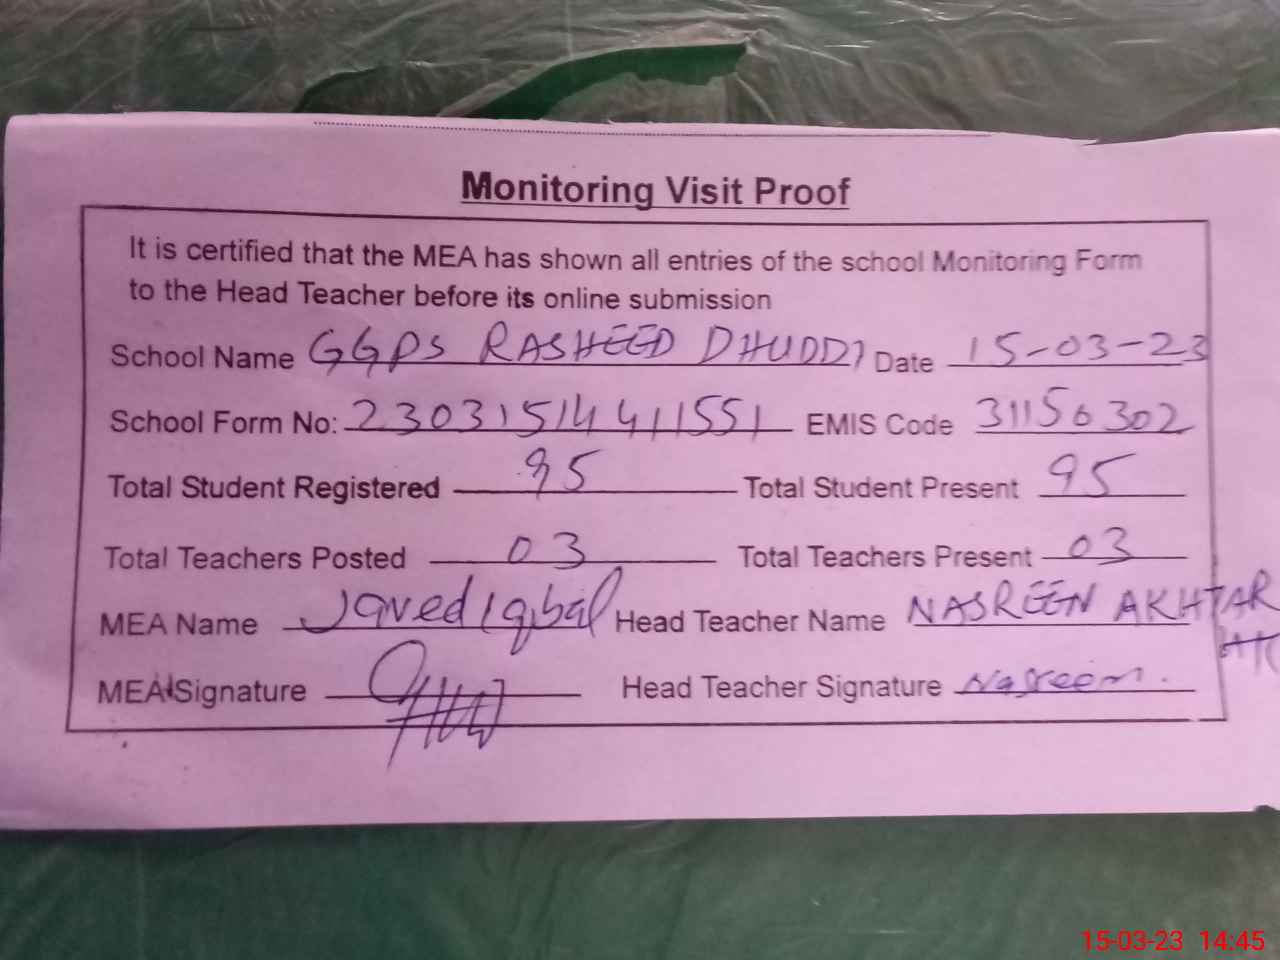 Monitoring Visit Proof
It is certified that the MEA has shown all entries of the school Monitoring Form
to the Head Teacher before its online submission
School Name GGPS RASHEED DHUDDI Date 15-03-23
School Form No: 23031514411551 EMIS Code 31150302
Total Student Registered 95 Total Student Present 95
Total Teachers Posted 03 Total Teachers Present 03
MEA Name Javed Iqbal Head Teacher Name NASREEN AKHTAR
MEA Signature Head Teacher Signature Nasreen.
15-03-23 14:45